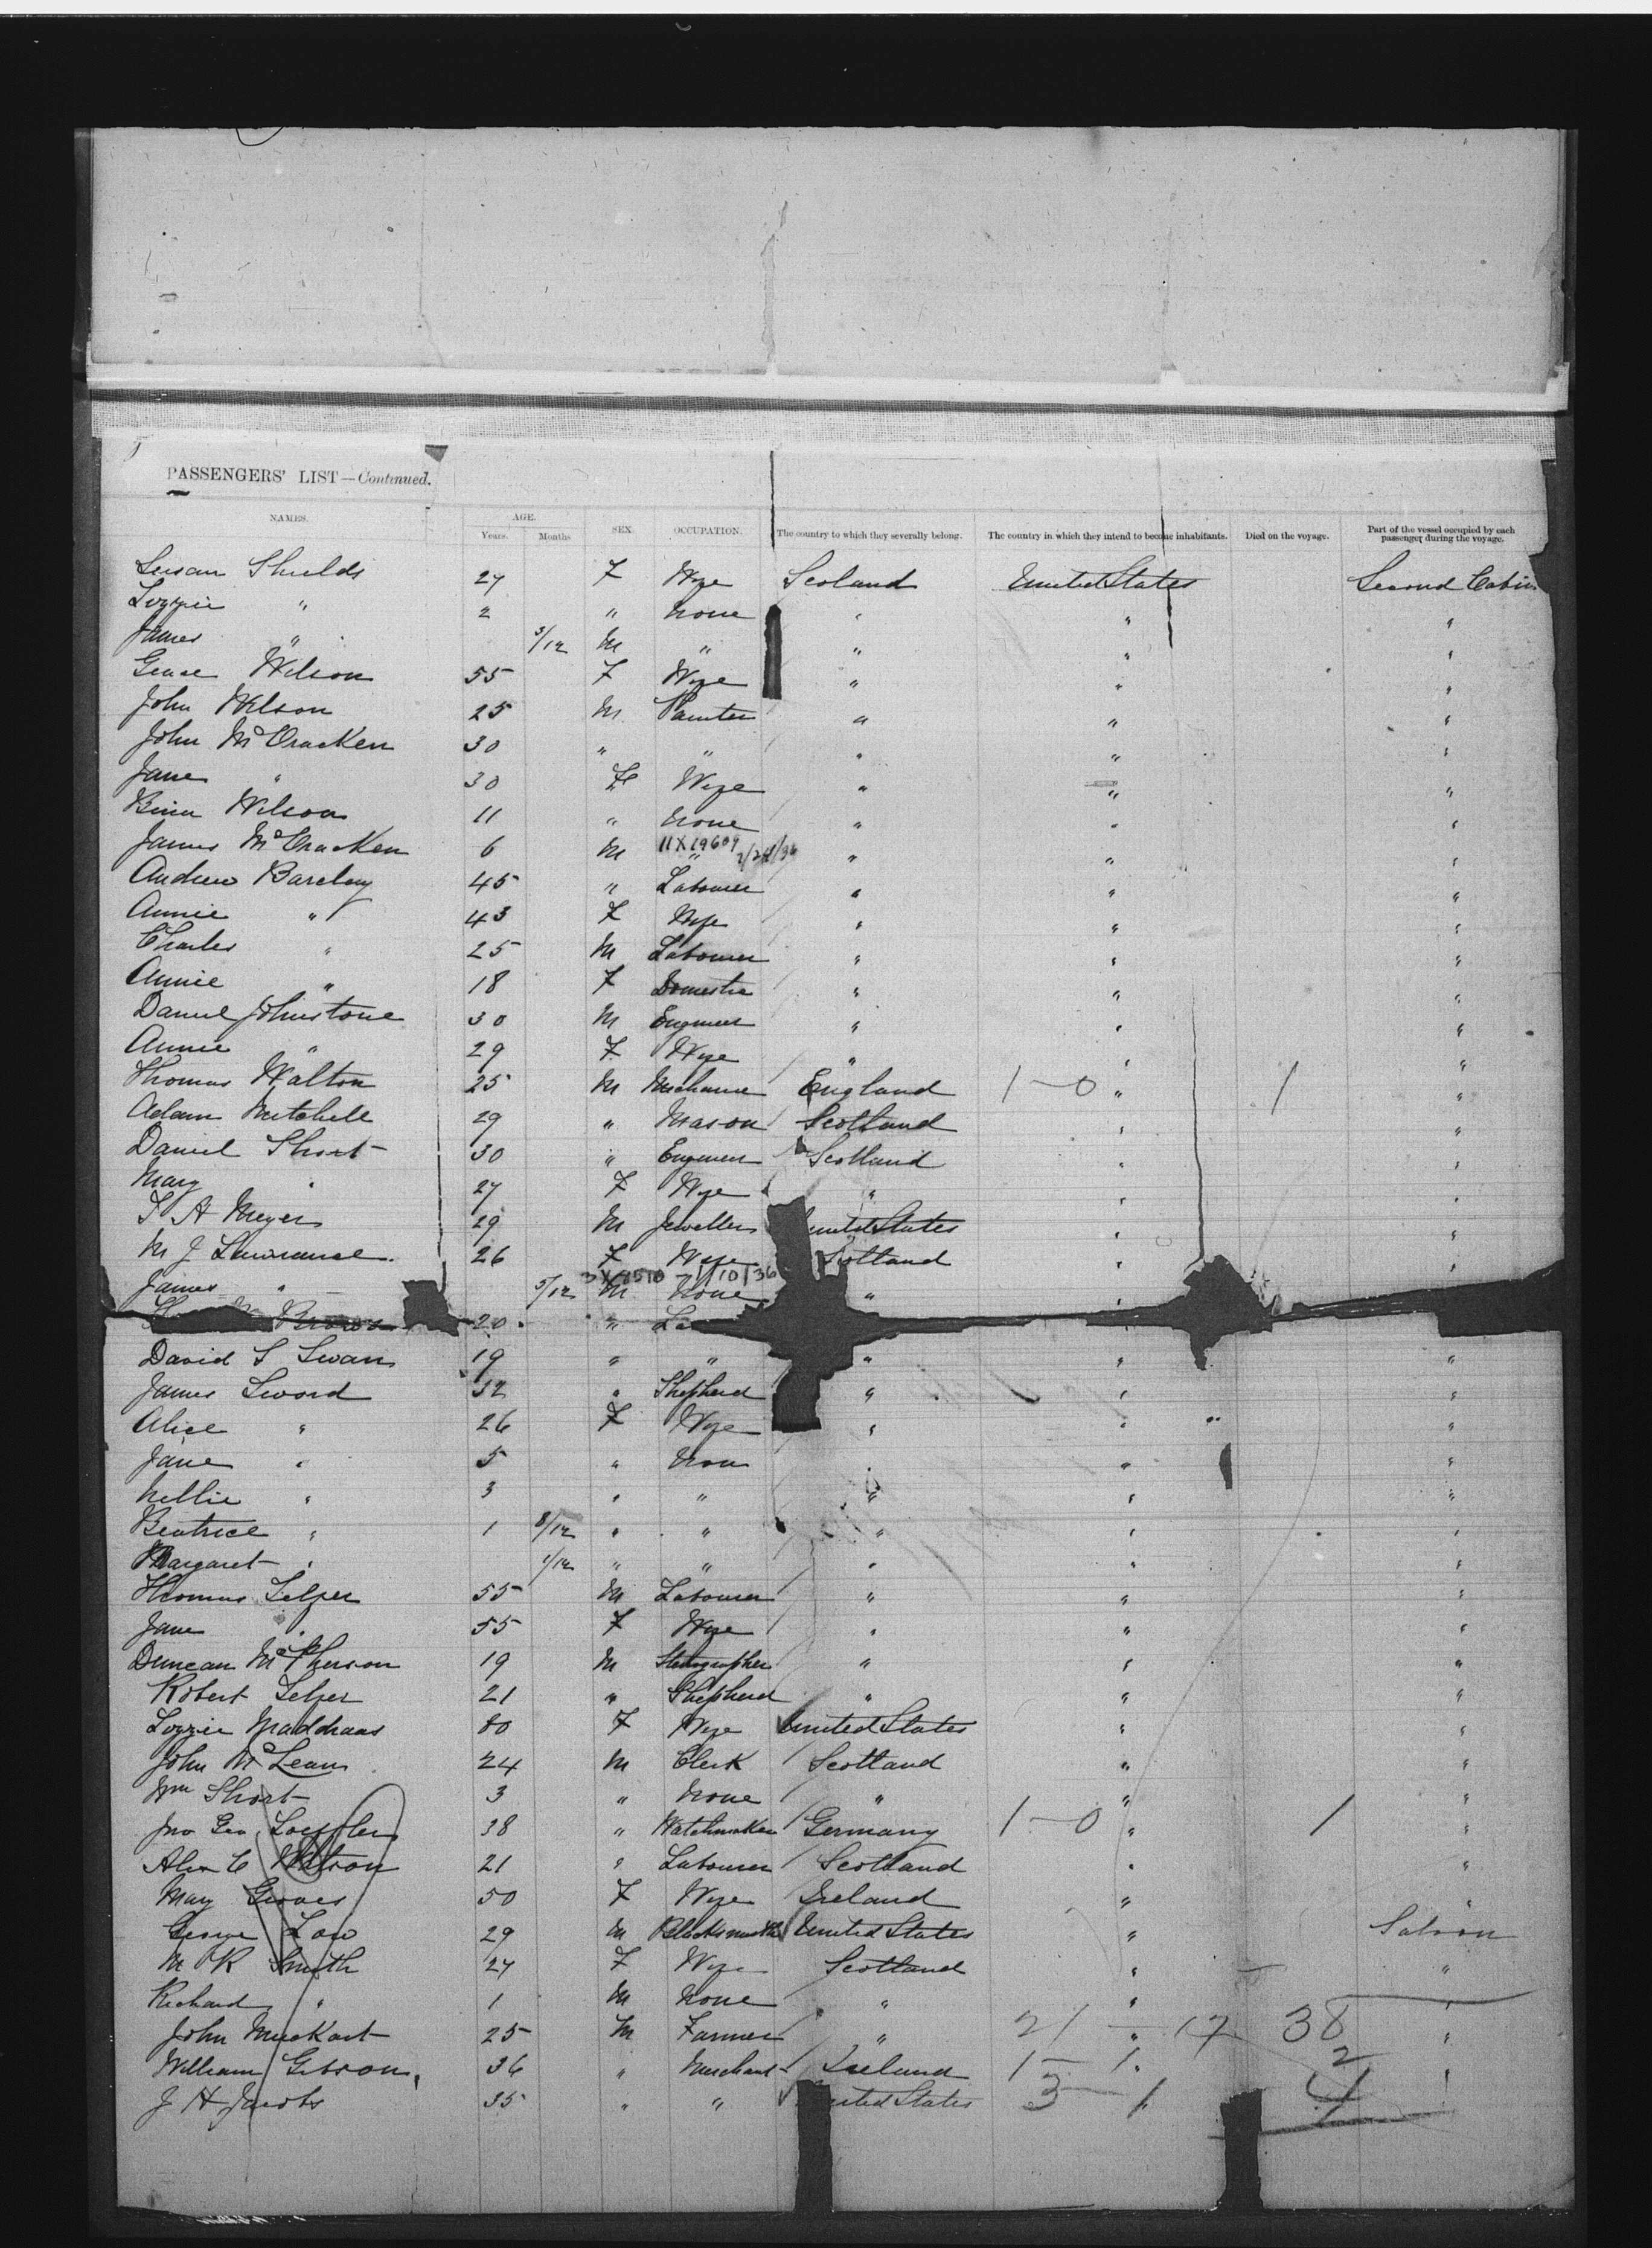 PASSENGERS' LIST—Continued.
NAMES. AGE. SEX. OCCUPATION. The country to which they severally belong. The country in which they intend to become inhabitants. Died on the voyage. Part of the vessel occupied by each passenger during the voyage.
Years. Months
Susan Shields 27 F Wife Scoland United States Second Cabin
Lizzie " 2 " None " " "
James " 3/12 M " " " "
Grace Wilson 55 F Wife " " "
John Wilson 25 M Painter " " "
John McCracken 30 " " " " "
Jane " 30 F Wife " " "
Wilson 11 " None " " "
James McCracken 6 M 11X19609 " 2/24/36 " " "
Andrew Barclay 45 " Labourer " " "
Annie " 43 F Wife " " "
Charles " 25 M Labourer " " "
Annie " 18 F Domestic " " "
Daniel Johnstone 30 M Engineer " " "
Annie " 29 F Wife " " "
Thomas Walton 25 M Mechanic England 1-0 " 1 "
Adam Mitchell 29 " Mason Scotland " "
Daniel Short 30 " Engineer Scotland " "
Mary " 27 F Wife " " "
S A Meyer 29 M Jeweller United States " "
M J Lawrance 26 F Wife Scotland " "
James " 5/12 M None " "
Brown 20 " La
David S Swan 19 " " " " "
James Sword 32 " Shepherd " " "
Alice " 26 F Wife " " "
Jane " 5 " Non " " "
Nellie " 3 " " " " "
Beatrice " 1 8/12 " " " " "
Margaret " 1/12 " " " " "
Thomas Telfer 55 M Labourer " " "
Jane " 55 F Wife " " "
Duncan McPherson 19 M Stenographer " " "
Robert Telfer 21 " Shepherd " " "
Lizzie Maddraas 80 F Wife United States " "
John McLean 24 M Clerk Scotland " "
Wm Short 3 " None " " "
Jno Geo Loeffler 38 " Watchmaker Germany 1-0 " 1 "
Alex C Watson 21 " Labourer Scotland " "
Mary Groves 50 F Wife Ireland " "
George Low 29 M Blacksmith United States " Saloon
M R Smith 27 F Wife Scotland " "
Richard " 1 M None " " "
John Muckart 25 M Farmer " 21 - " 17 38 "
William Gibson 36 " Merchant Ireland 1 - 1 2 "
J H Jacobs 35 " " United States 3 - 1 4 "